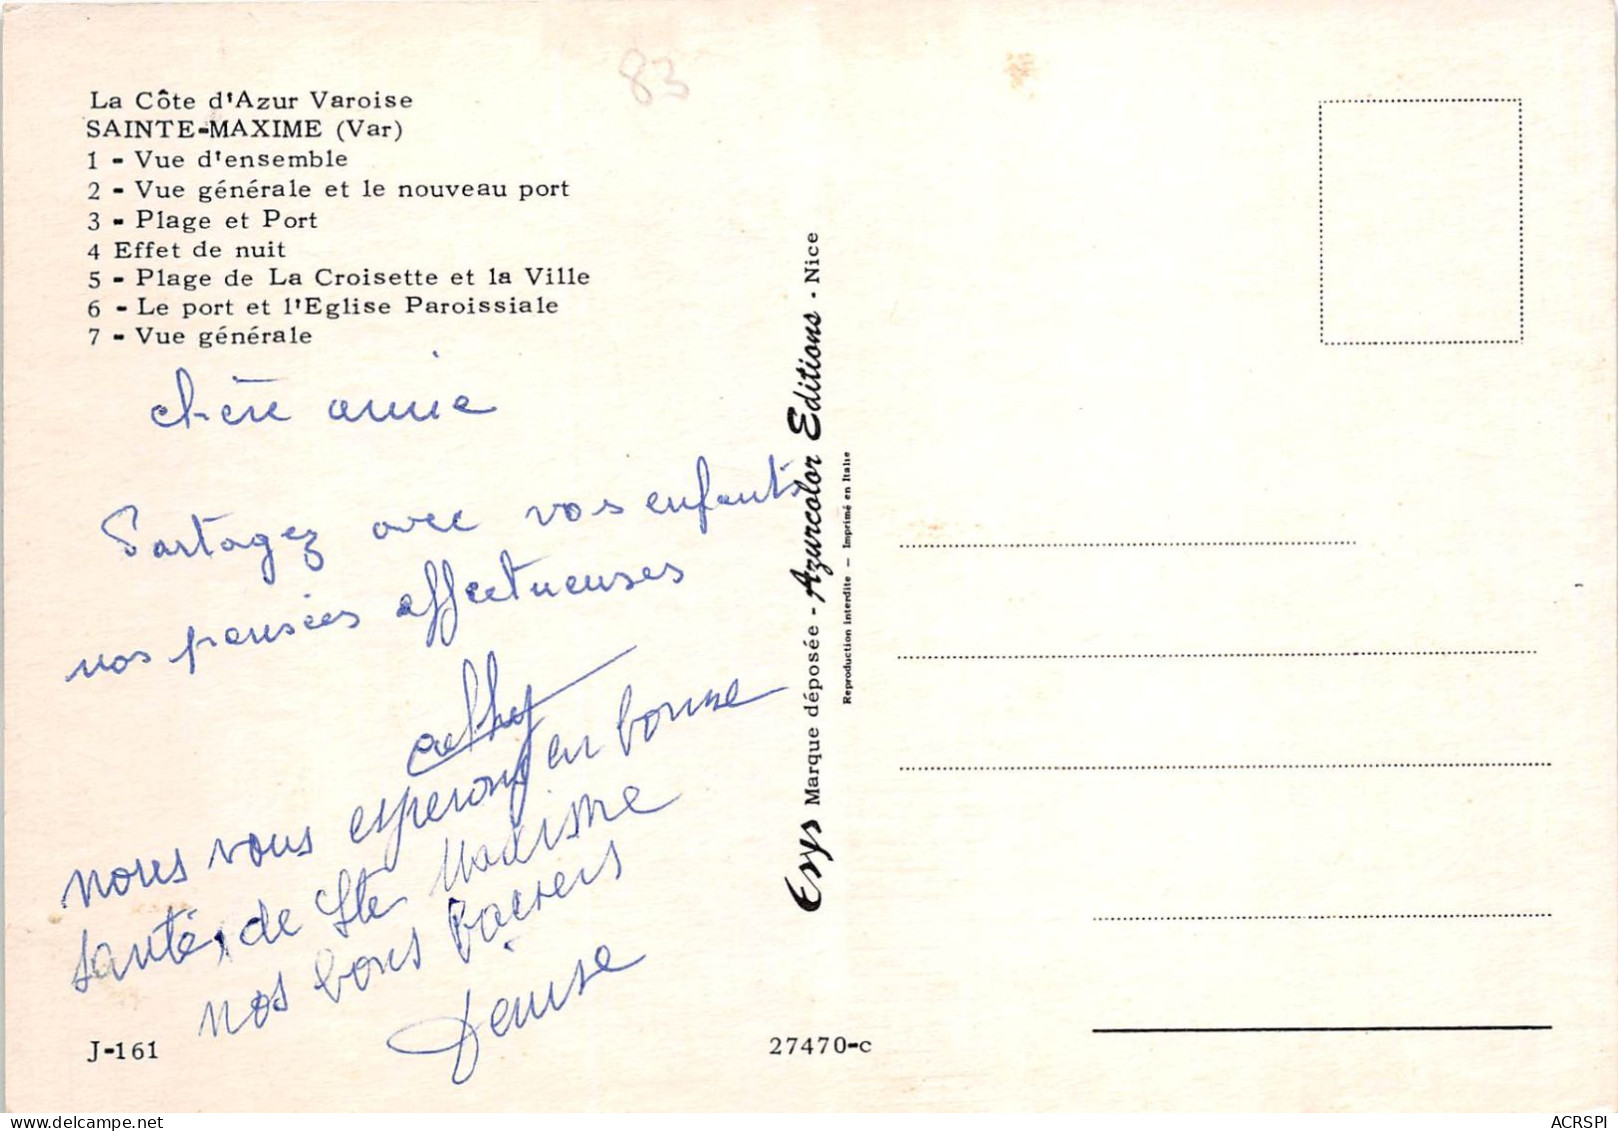 83
La Côte d'Azur Varoise
SAINTE-MAXIME (Var)
1 - Vue d'ensemble
2 - Vue générale et le nouveau port
3 - Plage et Port
4 Effet de nuit
5 - Plage de La Croisette et la Ville
6 - Le port et l'Eglise Paroissiale
7 - Vue générale
chère annie
Partagez avec vos enfants
nos pensées affectueuses
nous vous esperons en bonne
santé, de Ste Maxime
nos bons baisers
Denise
J-161
27470-c
Erys Marque déposée - Azurcolor Editions - Nice
Reproduction interdite — Imprimé en Italie
ACRSPI